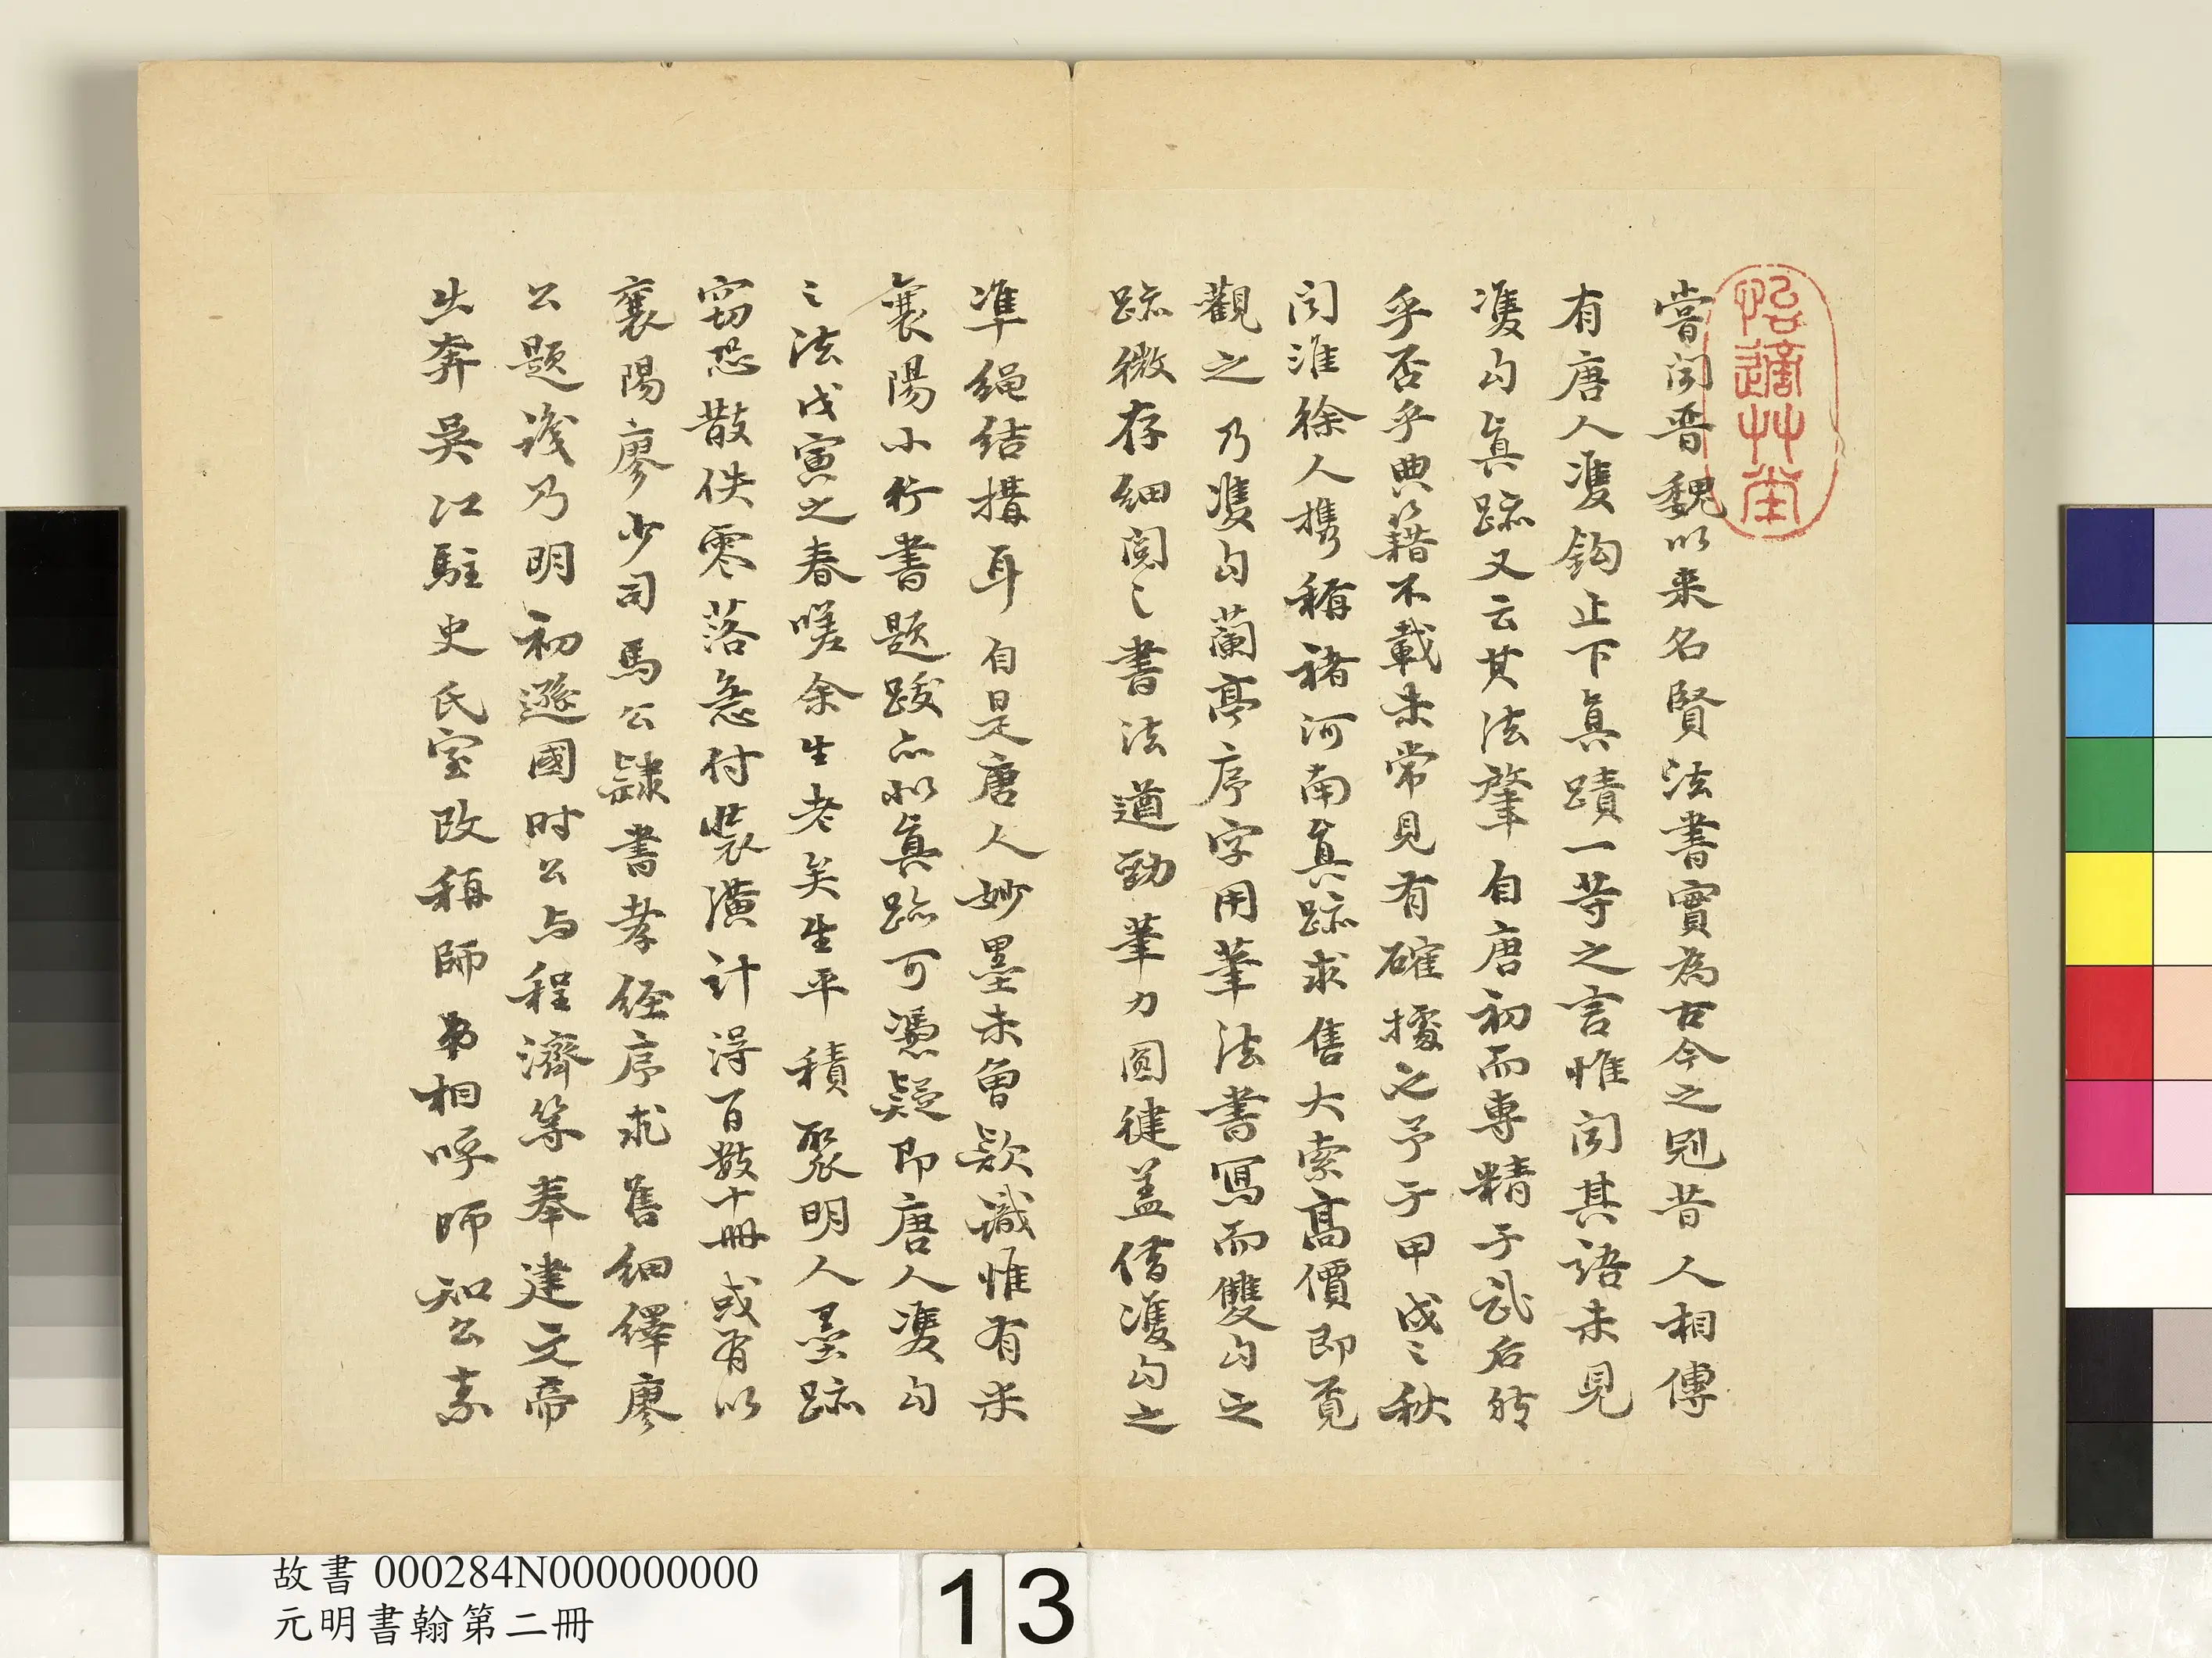 怡適草堂
嘗闻晋魏以来名賢法書實為古今之冠昔人相傳
有唐人㕠鈎止下真蹟一等之言惟闻其語未見
㕠勾真跡又云其法肇自唐初而專精于武后時
乎否乎典籍不載未常見有確據也予于甲戌〻秋
闻淮徐人携稱褚河南真跡求售大索高價即覓
觀之乃㕠勾蘭亭序字用筆法書寫而雙勾之
跡微存细阅〻書法遒勁筆力圆健盖借㕠勾之
準绳结搆耳自是唐人妙墨未曾款識惟有米
襄陽小行書题跋亦似真跡可憑疑即唐人㕠勾
〻法戊寅之春嗟余生老矣生平積聚明人墨跡
窃恐散佚零落急付裝潢計得百数十冊或有以
襄陽廖少司馬公隸書孝经序求售细繹廖
公题识乃明初遜國时公与程濟等奉建文帝
出奔吴江駐史氏室改稱師弟相呼師知公素
故書 000284N000000000
元明書翰第二冊
13